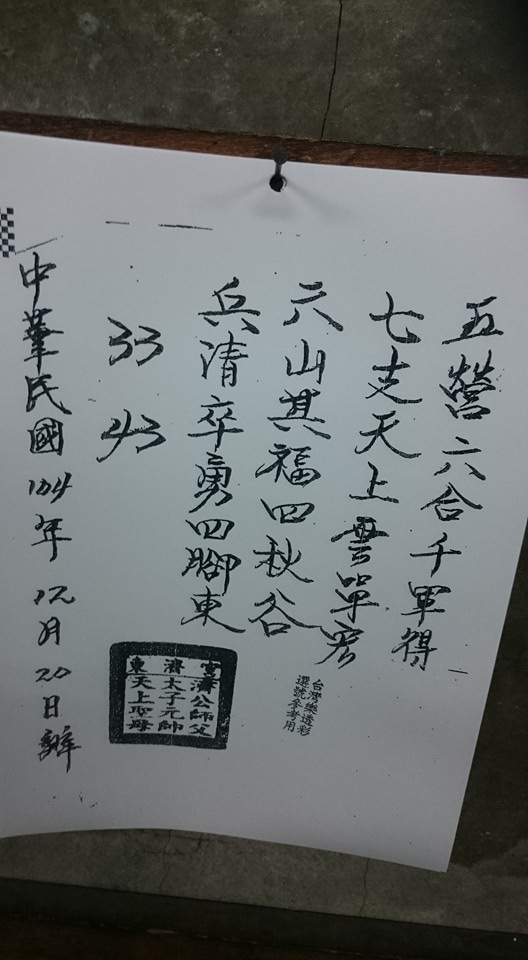 五營六合千軍得
七支天上雲單宏
六山其福四秋谷
兵清卒勇四腳東
33
43
台灣樂透彩
選號參考用
宮濟東
濟公師父
太子元帥
天上聖母
中華民國104年12月20日辦